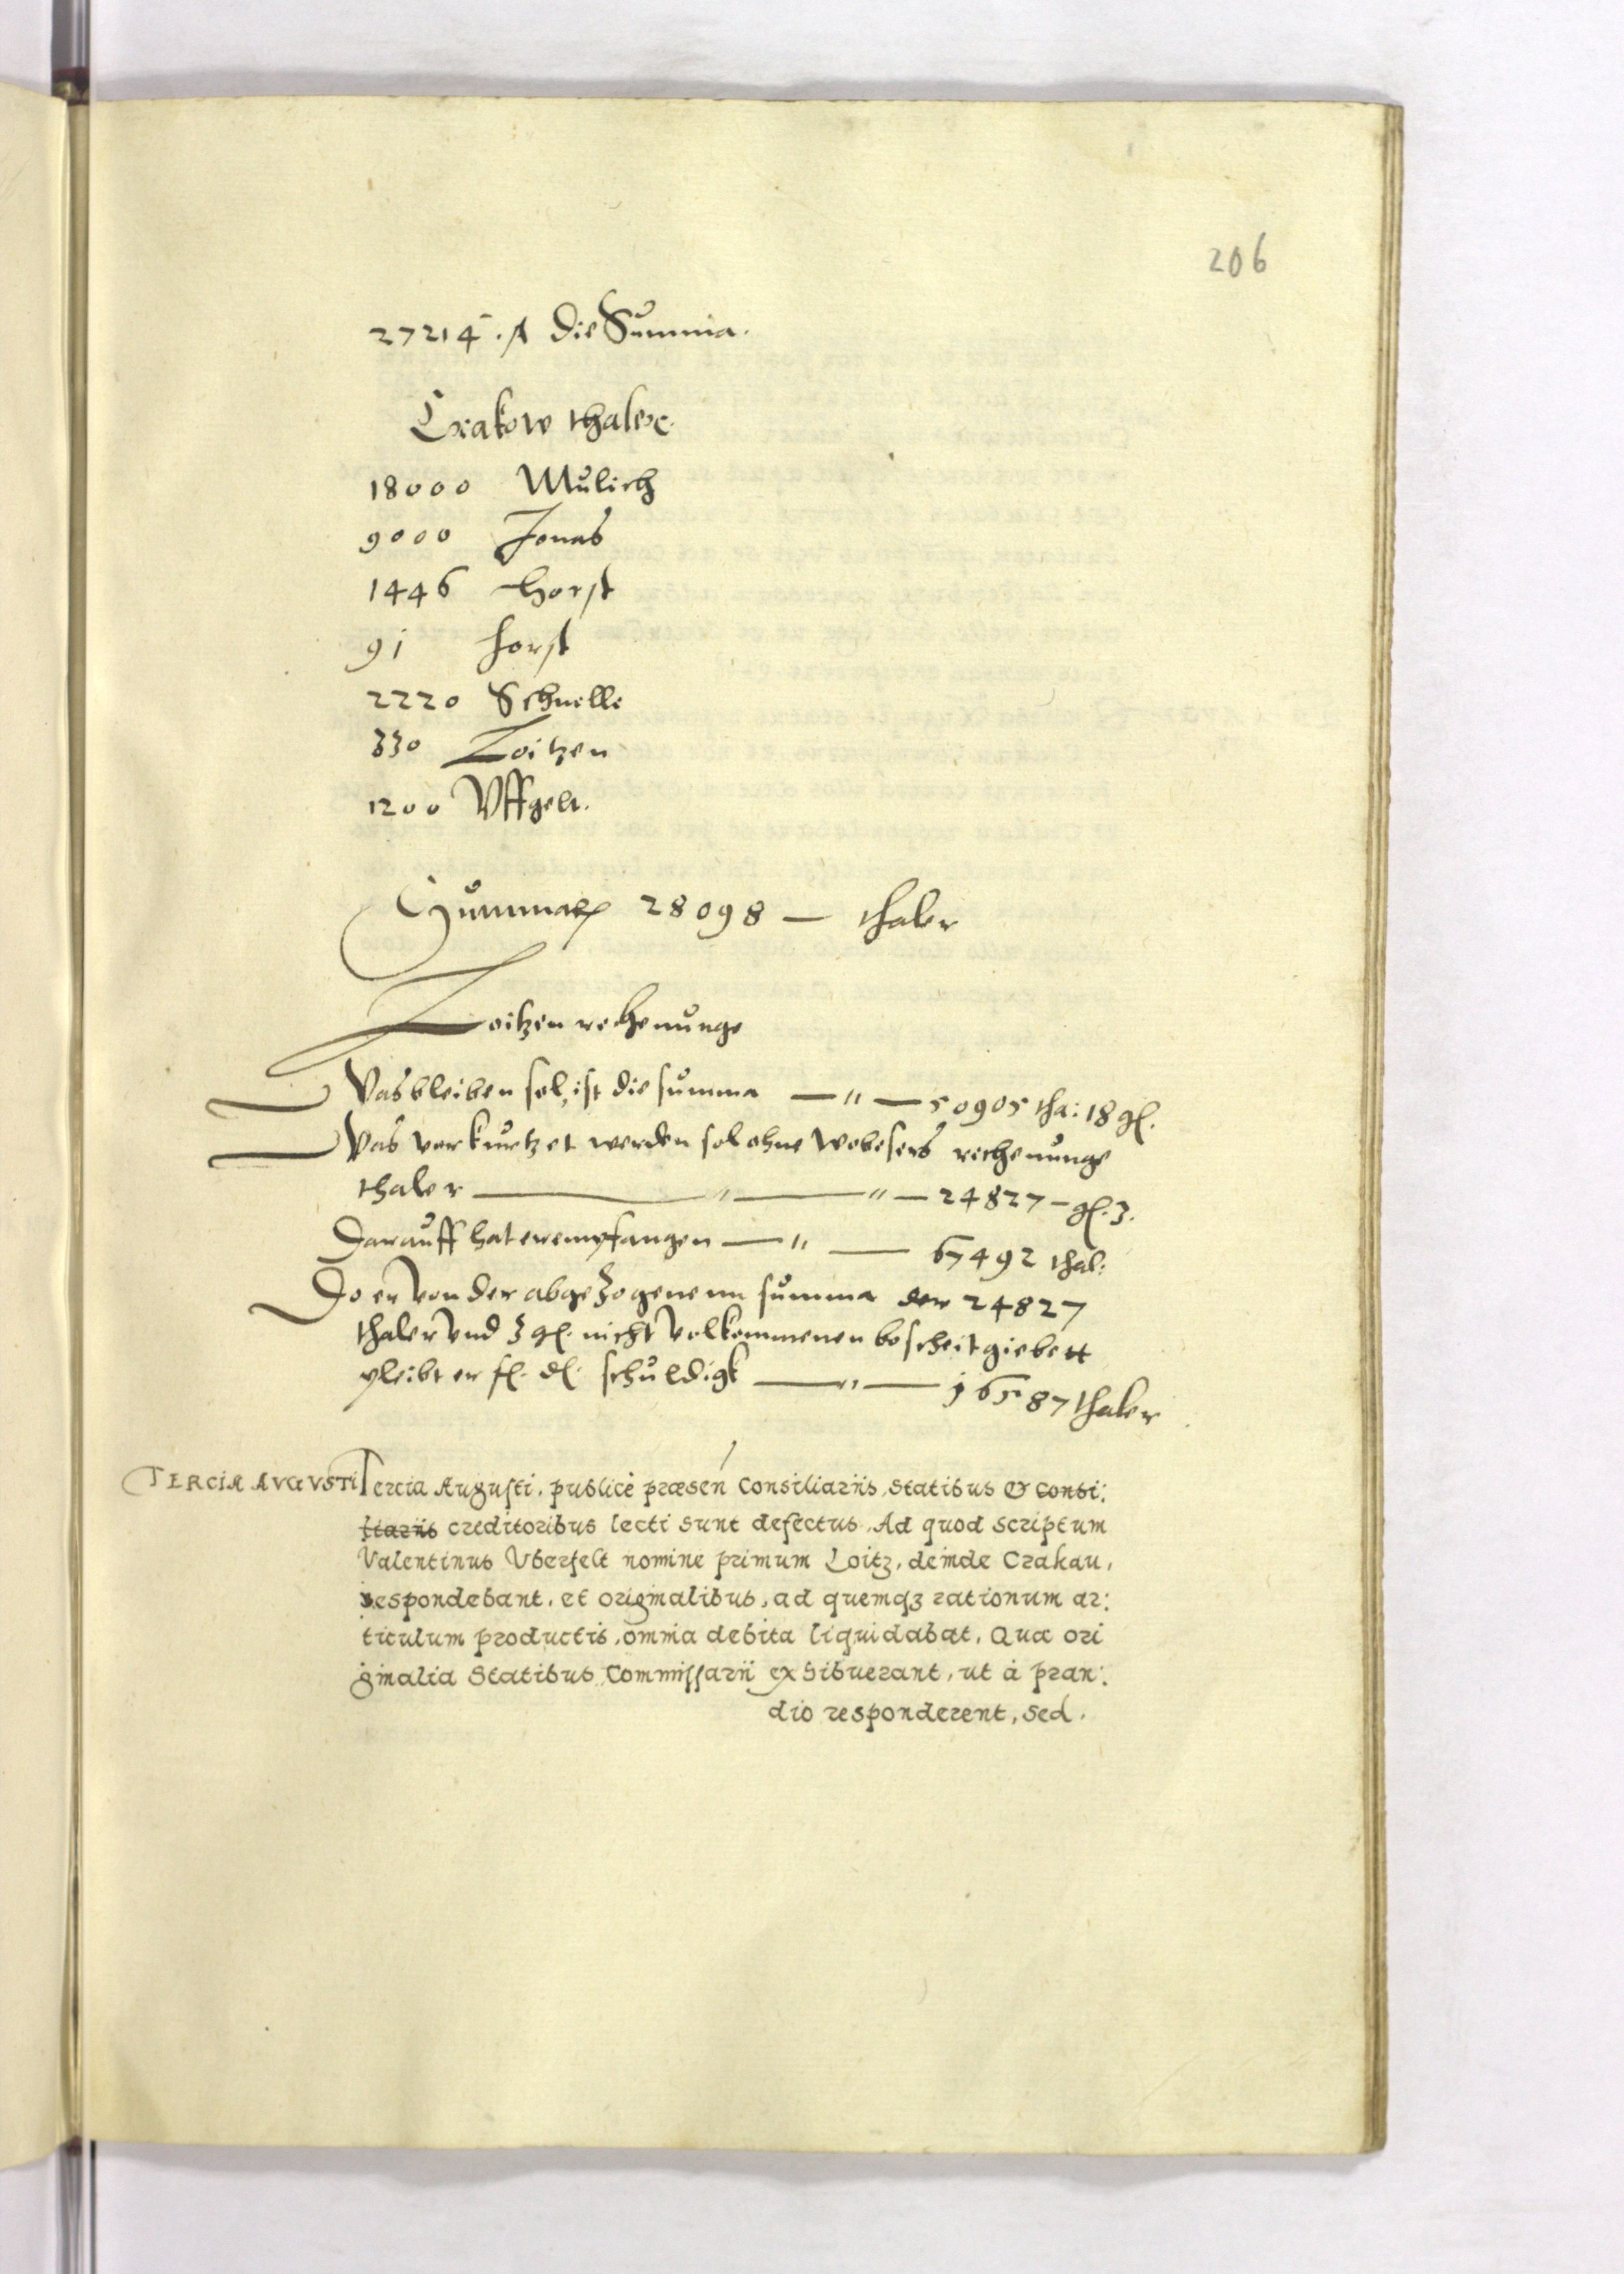 206
27214 . fl die Summa.
Crakow thaler.
18000 Mulich
9000 Jonas
1446 Horst
91 Horst
2220 Schnelle
330 Loitzen
1200 Uffgelt.
Summa 28098 — thaler
Loitzen rechenunge
Was bleiben sol, ist die summa — " — 50905 tha: 18 gl.
Was verkurtzet werden sol ohne Wobesers rechenunge
thaler — " — " — 24827 – gl. 3.
Darauff hat er empfangen — " — 67492 thal:
Do er von der abgezogenenn summa der 24827
thaler und 3 gl. nicht volkommenen bescheit giebett
pleibt er schuldigk — " — 16587 thaler
TERCIA AVGVSTI Tercia Augusti, publicè præsen Consiliariis, Statibus & Consi:
liariis creditoribus lecti sunt defectus. Ad quod scriptum
Valentinus Vberfelt nomine primum Loitz, deinde Crakau,
respondebant, et originalibus, ad quemqꝫ rationum ar:
ticulum productis, omnia debita liquidabat, Quæ ori
ginalia Statibus Commissarii exhibuerant, ut à pran:
dio responderent, sed.